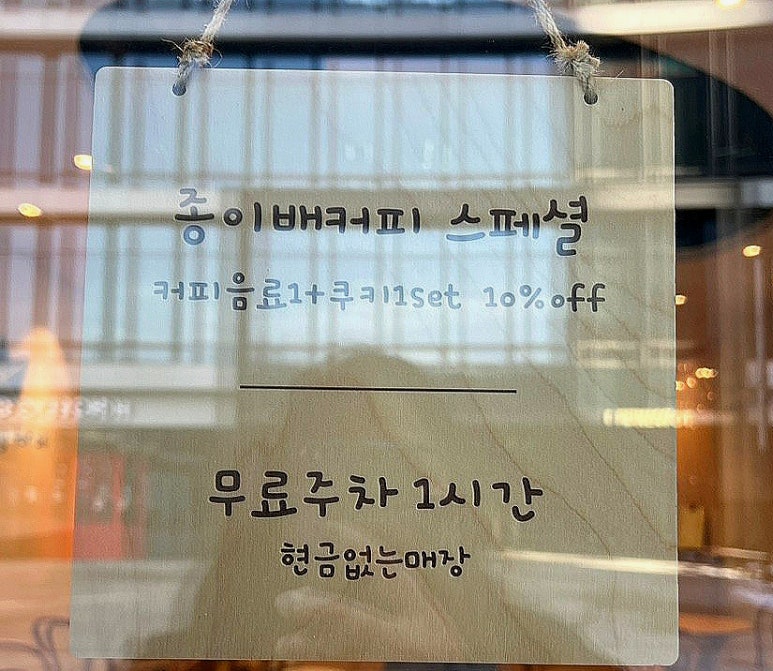 종이배커피 스페셜
커피음료1+쿠키1set 10%off
무료주차 1시간
현금없는매장